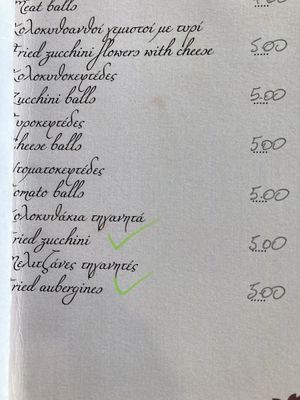 Meat balls
Κολοκυθοανθοί γεμιστοί με τυρί
Fried zucchini flowers with cheese 5.00
Κολοκυθοκεφτέδες
Zucchini balls 5.00
Τυροκεφτέδες
Cheese balls 5.00
Ντοματοκεφτέδες
Tomato balls 5.00
Κολοκυθάκια τηγανητά
Fried zucchini 5.00
Μελιτζάνες τηγανητές
Fried aubergines 5.00